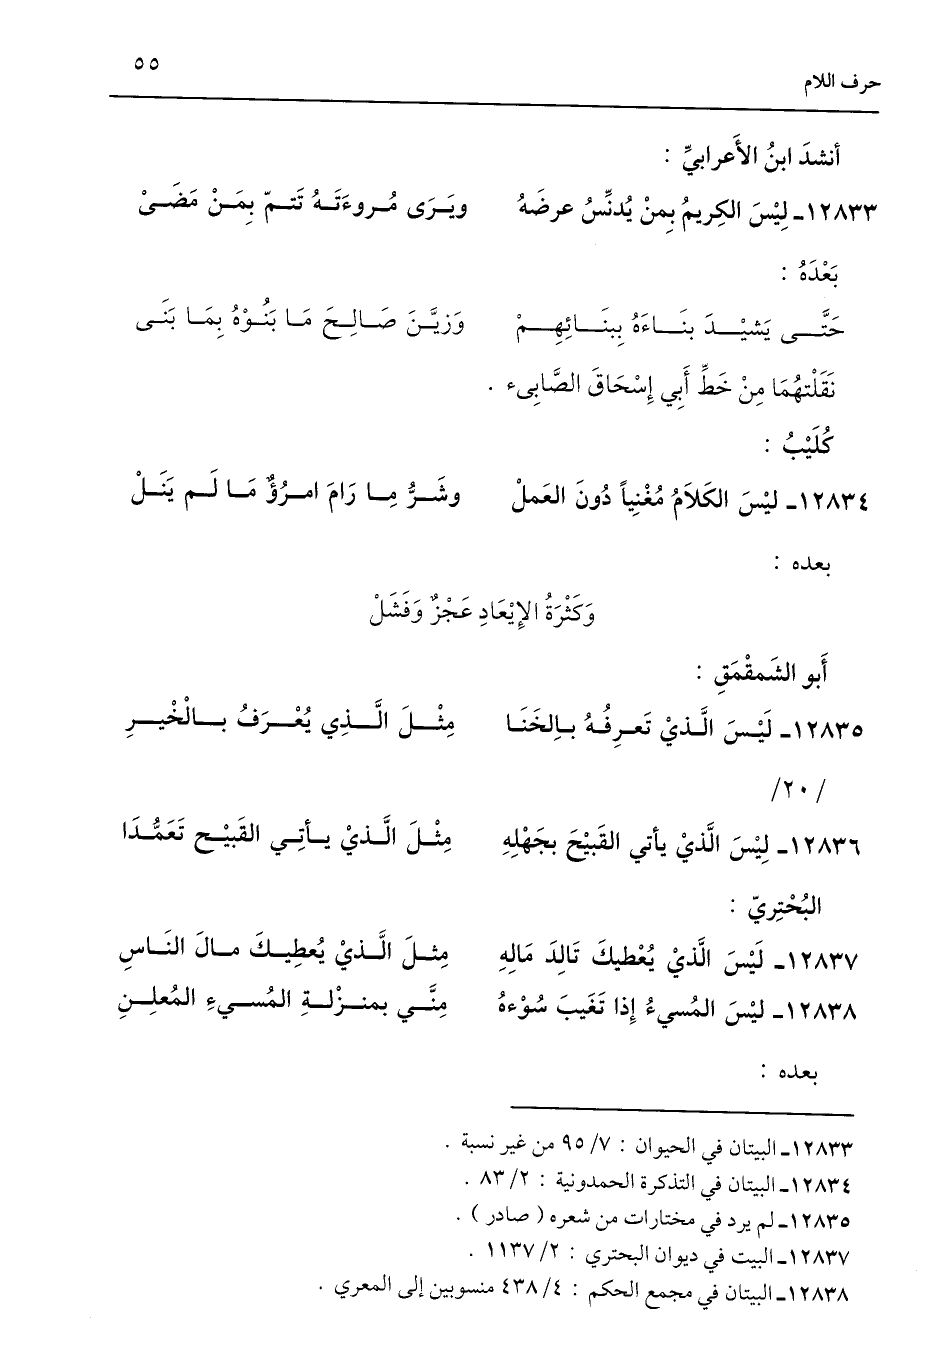 ٥٥
حرف اللام
أنشدَ ابنُ الأَعرابيِّ :
١٢٨٣٣ـ لَيْسَ الكِريمُ بِمنْ يُدنِّسُ عرضَهُ ويَرَى مُروءَتَهُ تَتمّ بِمَنْ مَضَىْ
بَعْدَهُ :
حَتَّى يَشيْدَ بنَاءَهُ ببنَائِهِمْ وَزيَّنَ صَالِحَ مَا بَنُوْهُ بِمَا بَنَى
نَقَلْتهُمَا مِنْ خَطِّ أَبي إسْحَاقَ الصَّابىء .
كُلَيْبُ :
١٢٨٣٤ـ ليْسَ الكَلاَمُ مُغْنِياً دُونَ العَملْ وشَرُّ مِا رَامَ امرُؤٌ مَا لَم يَنَلْ
بعده :
وَكَثْرَةُ الإيْعَادِ عَجْزٌ وَفَشَلْ
أَبو الشَمقْمَقِ :
١٢٨٣٥ـ لَيْسَ الَّذيْ تَعرِفُهُ بِالخَنَا مِثْلَ الَّذِي يُعْرَفُ بالْخَيْرِ
/٢٠/
١٢٨٣٦ـ لِيْسَ الَّذيْ يأتي القَبيْحَ بجَهْلِهِ مِثْلَ الَّذيْ يأتِي القَبيْح تَعَمُّدَا
البُحْتِريّ :
١٢٨٣٧ـ لَيْسَ الَّذيْ يُعْطيكَ تَالِدَ مَالِهِ مثلَ الَّذيْ يُعطِيكَ مالَ النَاسِ
١٢٨٣٨ـ ليْسَ المُسيءُ إذا تَغَيبَ سُوْءهُ مِنَّي بمنزْلةِ المُسيءِ المُعلِنِ
بعده :
١٢٨٣٣ـ البيتان في الحيوان : ٧/ ٩٥ من غير نسبة .
١٢٨٣٤ـ البيتان في التذكرة الحمدونية : ٢/ ٨٣ .
١٢٨٣٥ـ لم يرد في مختارات من شعره ( صادر ) .
١٢٨٣٧ـ البيت في ديوان البحتري : ٢/ ١١٣٧ .
١٢٨٣٨ـ البيتان في مجمع الحكم : ٤/ ٤٣٨ منسوبين إلى المعري .